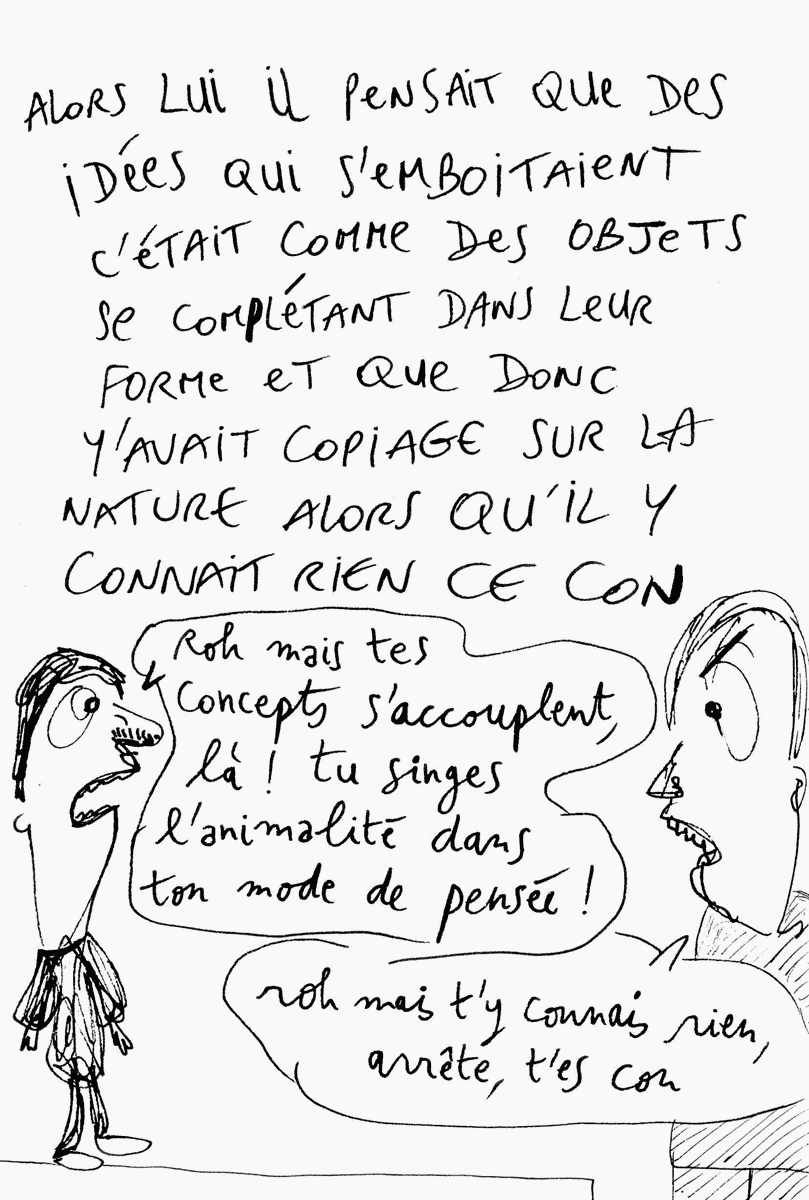 ALORS LUI IL PENSAIT QUE DES
IDÉES QUI S'EMBOITAIENT
C'ÉTAIT COMME DES OBJETS
SE COMPLÉTANT DANS LEUR
FORME ET QUE DONC
Y'AVAIT COPIAGE SUR LA
NATURE ALORS QU'IL Y
CONNAIT RIEN CE CON
Roh mais tes
concepts s'accouplent,
là ! tu singes
l'animalité dans
ton mode de pensée !
roh mais t'y connais rien,
arrête, t'es con